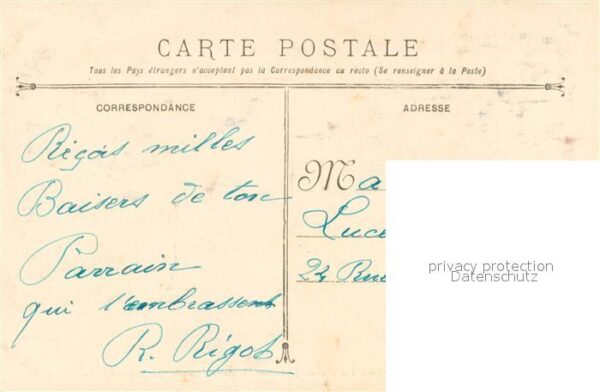 CARTE POSTALE
Tous les Pays étrangers n'acceptent pas la Correspondance au recto (Se renseigner à la Poste)
CORRESPONDANCE
ADRESSE
milles
Baisers de ton
Parrain
qui t'embrassent
R. Rigot
Ma
Luce
24 Rue
privacy protection
Datenschutz